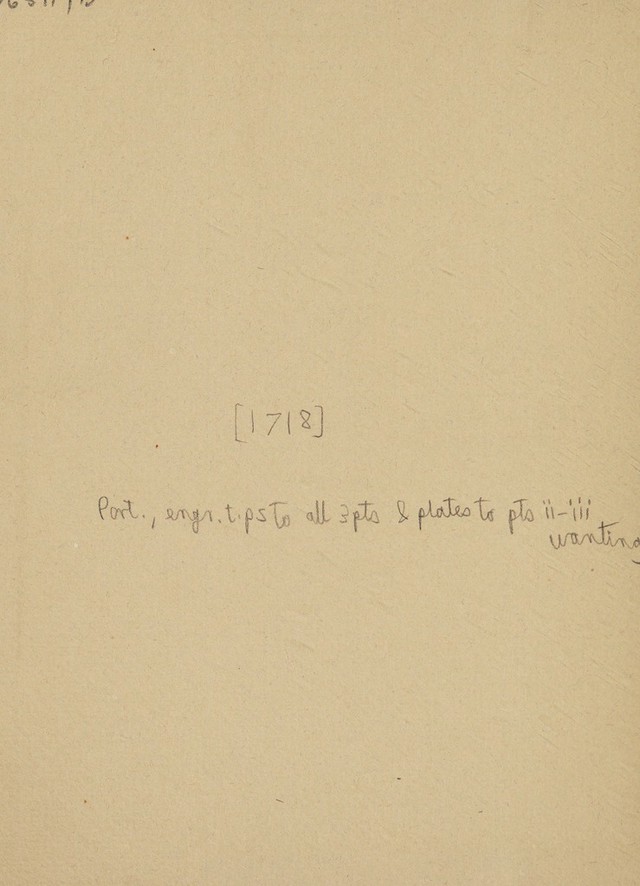 [1718]
Port., engr. t.ps to all 3 pts & plates to pts ii-iii
wanting